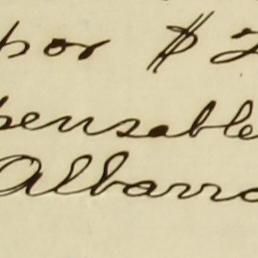 por $ 2
pensable
Albarra